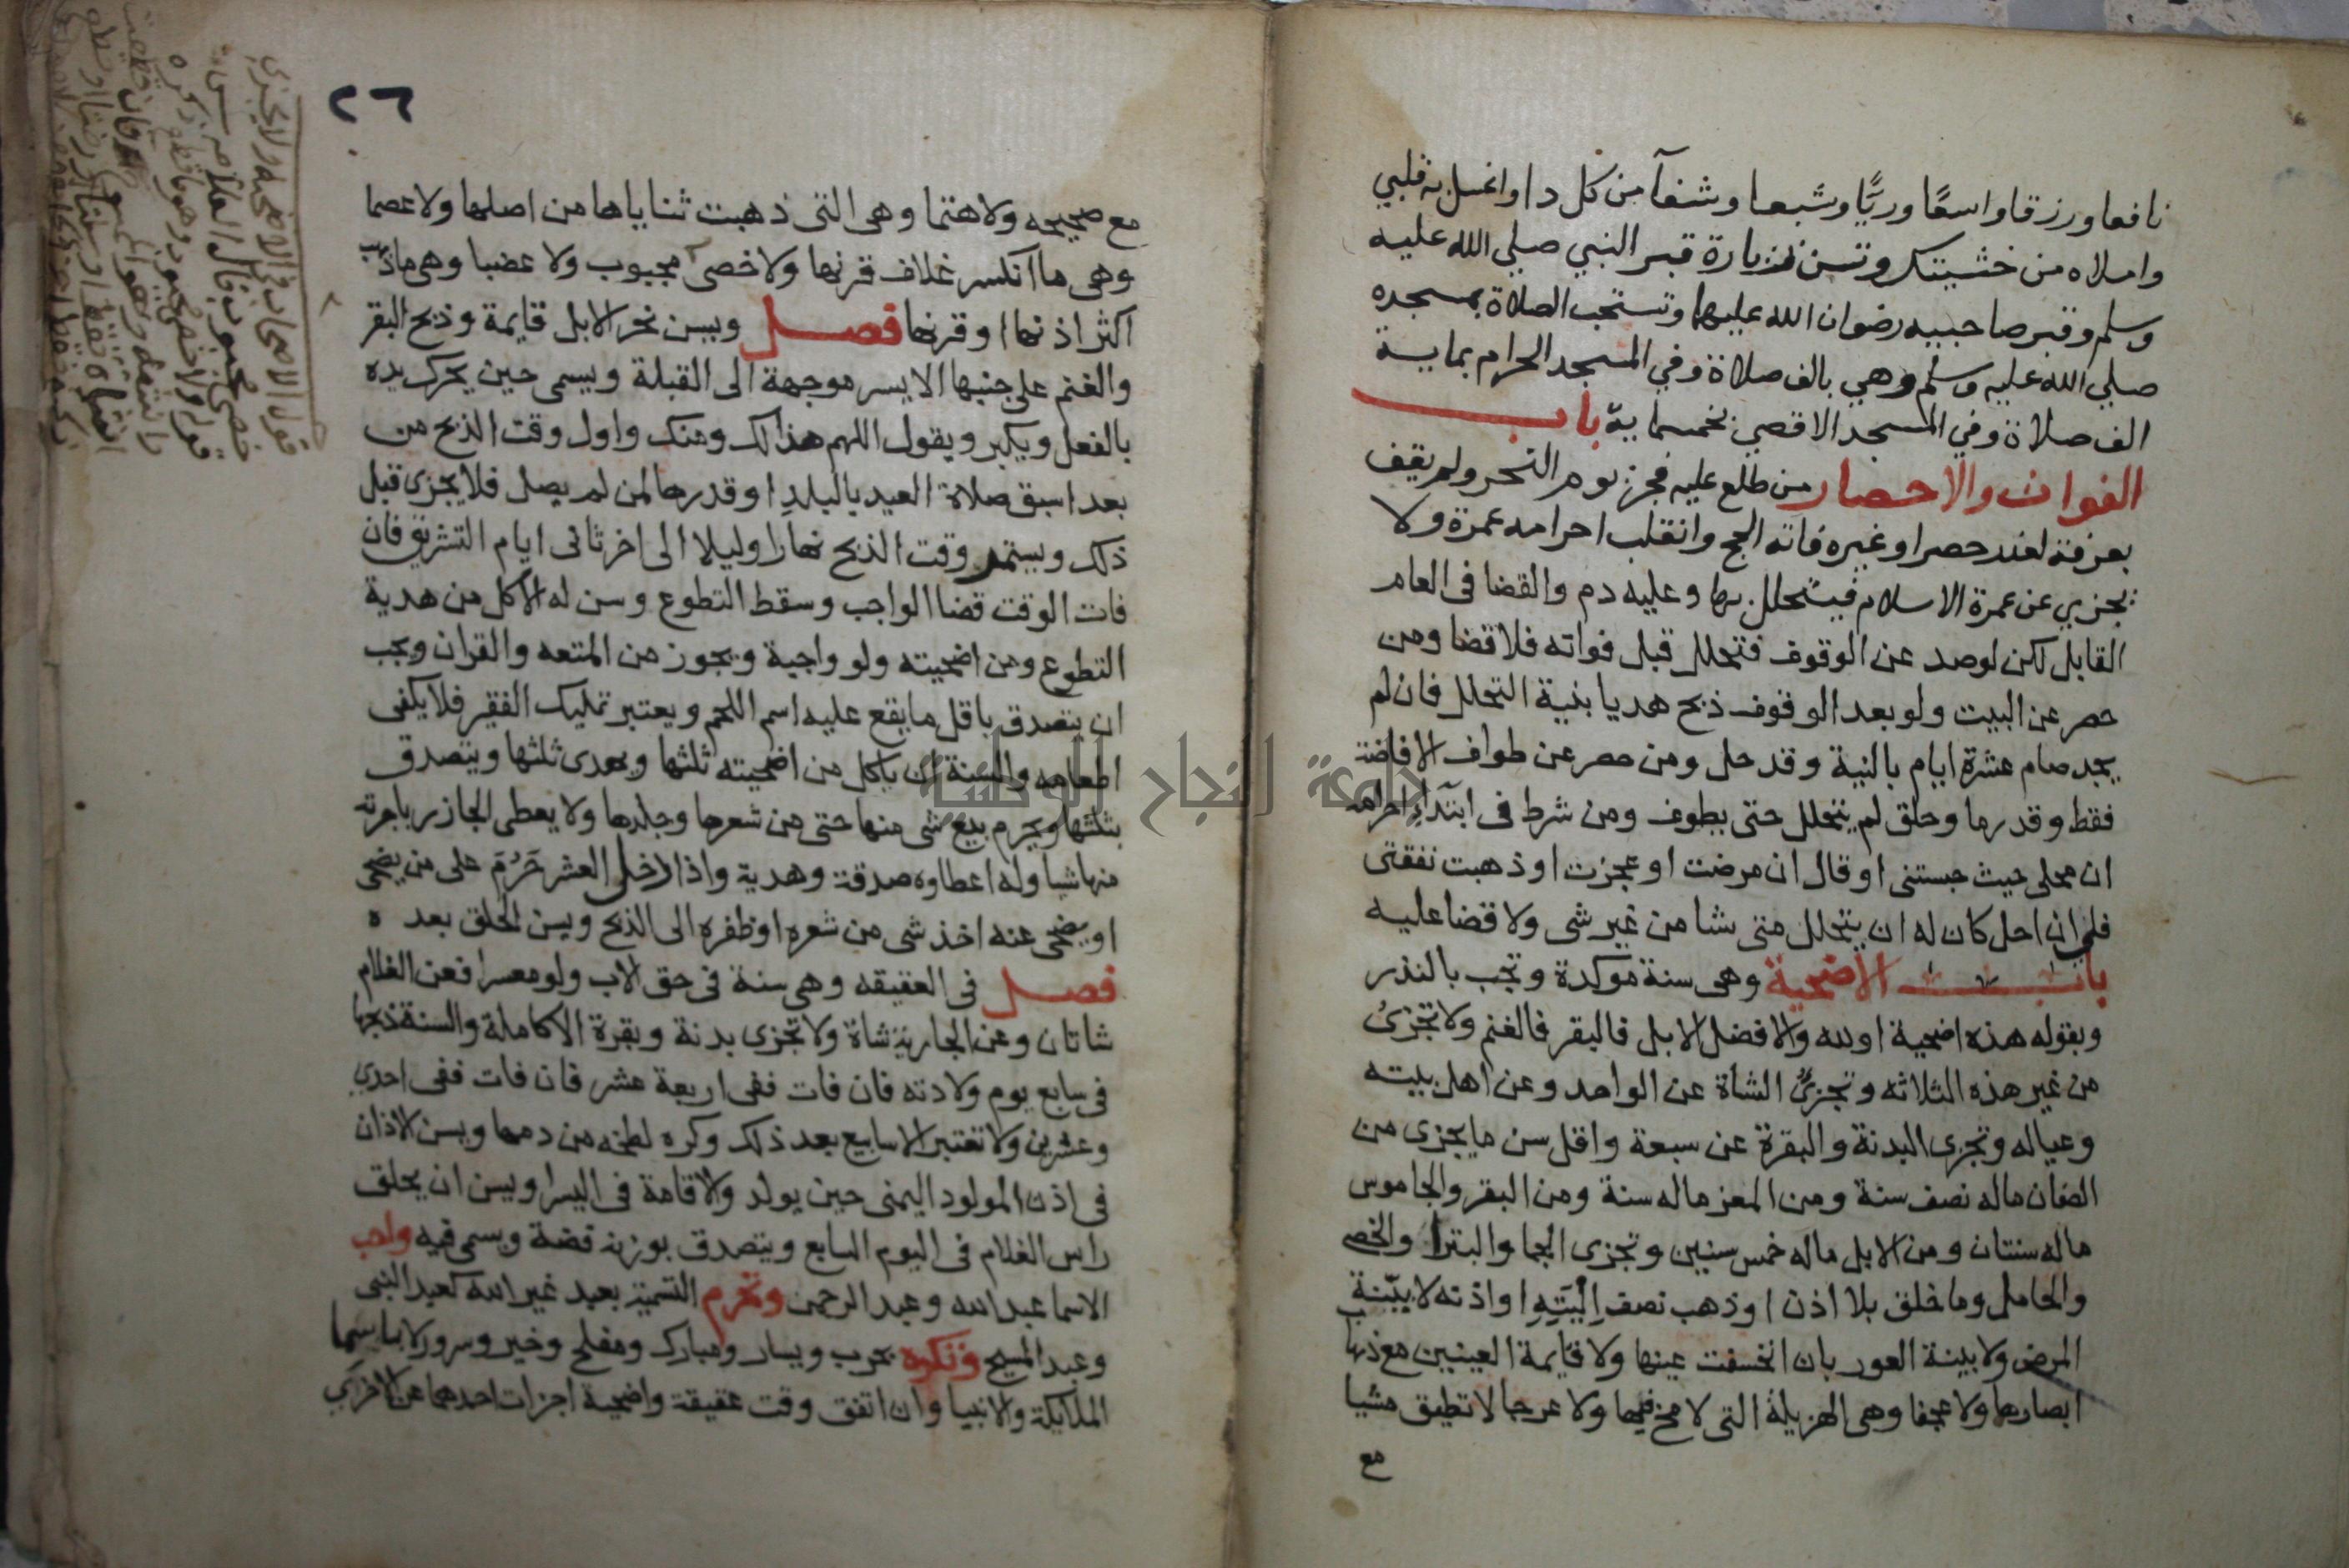 نافعا ورزقا واسعًا وريًّا وشبعا وشفآ من كل دا واغسل به قلبي
واملاه من خشيتك وتسن زيارة قبر النبي صلي الله عليه
وسلم وقبر صاحبيه رضوان الله عليهما وتستحب الصلاة بمسجده
صلي الله عليه وسلم وهي بالف صلاة وفي المسجد الحرام بماية
الف صلاة وفي المسجد الاقصي بخمسماية باب
الفوات والاحصار من طلع عليه فجر يوم النحر ولم يقف
بعرفة لعذر حصر او غيره فاته الحج وانقلب احرامه عمرة ولا
تجزي عن عمرة الاسلام فيتحلل بها وعليه دم والقضا فى العام
القابل لكن لو صد عن الوقوف فتحلل قبل فواته فلا قضا ومن
حصر عن البيت ولو بعد الوقوف ذبح هديا بنية التحلل فان لم
يجد صام عشرة ايام بالنية وقد حل ومن حصر عن طواف الافاضة
فقط وقد رما وحلق لم يتحلل حتى يطوف ومن شرط فى ابتدآء احرامه
ان محلى حيث حبستنى او قال ان مرضت او عجزت او ذهبت نفقتى
فلي ان احل كان له ان يتحلل متى شا من غير شى ولا قضا عليه
باب الأضحية وهى سنة موكدة وتجب بالنذر
وبقوله هذه اضحية او لله والافضل الابل فالبقر فالغنم ولا تجزئ
من غير هذه الثلاثه وتجزئ الشاة عن الواحد وعن اهل بيته
وعياله وتجزى البدنة والبقرة عن سبعة واقل سن ما يجزى من
الضان ماله نصف سنة ومن المعز ماله سنة ومن البقر والجاموس
ماله سنتان ومن الابل ماله خمس سنين وتجزى الجما والبترا والخصى
والحامل وما خلق بلا اذن او ذهب نصف اليته او اذنه لا بيّنة
المرض ولا بينة العور بان انخسفت عينها ولا قايمة العينين مع ذهاب
ابصارها ولا عجفا وهى الهزيلة التى لا مخ فيها ولا عرجا لا تطيق مشيا
مع
٢٦
مع صحيحه ولا هتما وهى التى ذهبت ثناياها من اصلها ولا عصما
وهى ما انكسر غلاف قرنها ولا خصى مجبوب ولا عضبا وهى ما ذهب
اكثر اذنها او قرنها فصل ويسن نحر الابل قايمة وذبح البقر
والغنم على جنبها الايسر موجهة الى القبلة ويسمى حين يحرك يده
بالفعل ويكبر ويقول اللهم هذا لك ومنك واول وقت الذبح من
بعد اسبق صلاة العيد بالبلد او قدرها لمن لم يصل فلا يجزى قبل
ذلك ويستمر وقت الذبح نهارا وليلا الى اخر ثانى ايام التشريق فان
فات الوقت قضا الواجب وسقط التطوع وسن له الاكل من هدية
التطوع ومن اضحيته ولو واجبة ويجوز من المتعه والقران ويجب
ان يتصدق باقل ما يقع عليه اسم اللحم ويعتبر تمليك الفقير فلا يكفى
اطعامه والسنة ان ياكل من اضحيته ثلثها ويهدى ثلثها ويتصدق
بثلثها ويحرم بيع شى منها حتى من شعرها وجلدها ولا يعطى الجازر باجرته
منها شيا وله اعطاوه صدقة وهدية واذا دخل العشر حَرُمَ على من يضحى
او يضحى عنه اخذ شى من شعره او ظفره الى الذبح ويسن الحلق بعد ه
فصل فى العقيقه وهى سنة فى حق الاب ولو معسرا فعن الغلام
شاتان وعن الجارية شاة ولا تجزى بدنة وبقرة الا كاملة والسنة ذبحها
فى سابع يوم ولادته فان فات ففى اربعة عشر فان فات ففى احدي
وعشرين ولا تعتبر الاسابيع بعد ذلك وكره لطخه من دمها ويسن الاذان
فى اذن المولود اليمنى حين يولد والاقامة فى اليسرا ويسن ان يحلق
راس الغلام فى اليوم السابع ويتصدق بوزنه فضة ويسمى فيه واحب
الاسما عبد الله وعبد الرحمن وتحرم التسمية بعبد غير الله كعبد النبى
وعبد المسيح وتكره بحرب ويسار ومبارك ومفلح وخير وسرور لا باسما
الملايكة والانبيا وان اتفق وقت عقيقة واضحية اجزات احدهما عن الاخرى
جامعة النجاح الوطنية